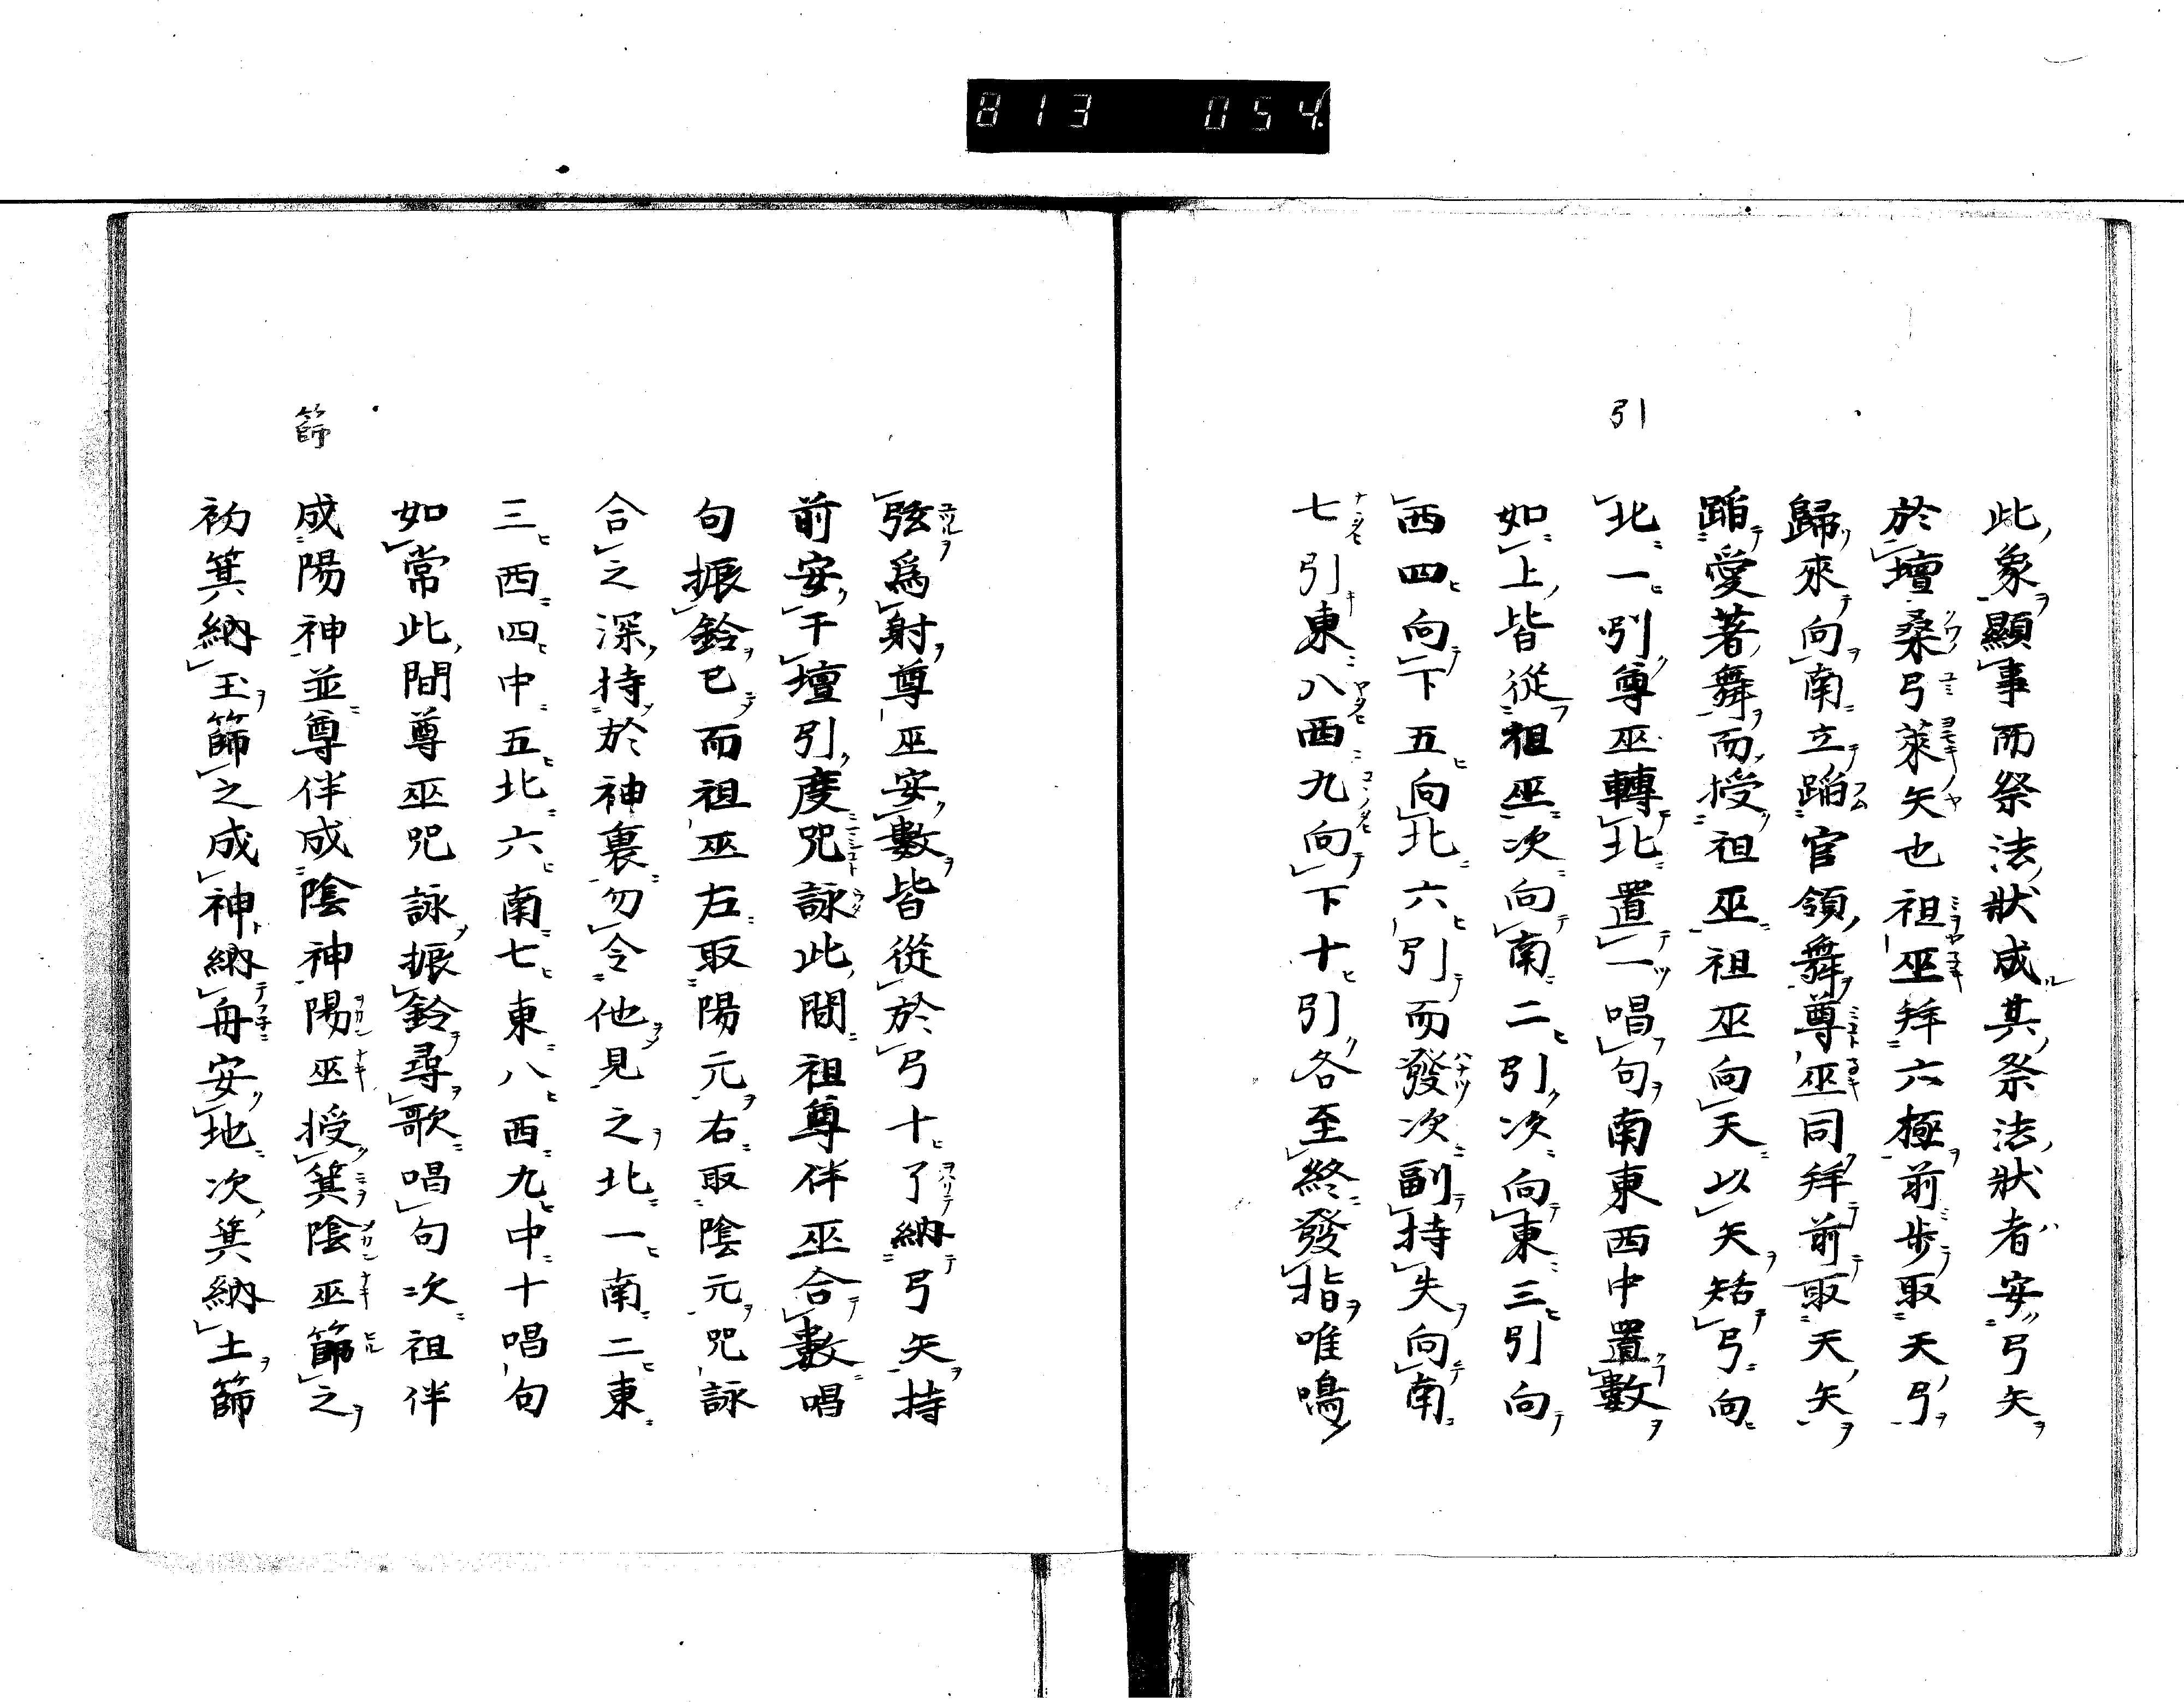 813 054
引
此象顯事而祭法狀成其祭法狀者安弓矢
於壇桑弓萊矢也祖巫拜六極前步取天弓
歸來向南立蹈官領舞尊巫同拜前取天矢
蹈愛著舞而授祖巫祖巫向天以矢𢎯弓向
北一引尊巫轉北置一唱句南東西中置數
如上皆從祖巫次向南二引次向東三引向
西四向下五向北六引而發次副持失向南
七引東八西九向下十引各至終發指唯鳴
篩
弦爲射尊巫安數皆從於弓十了納弓矢持
前安于壇引度咒詠此間祖尊伴巫合數唱
句振鈴已而祖巫左取陽元右取陰元咒詠
合之深持於神裏勿令他見之北一南二東
三西四中五北六南七東八西九中十唱句
如常此間尊巫咒詠振鈴尋歌唱句次祖伴
成陽神並尊伴成陰神陽巫授箕陰巫篩之
初箕納玉篩之成神納舟安地次箕納土篩